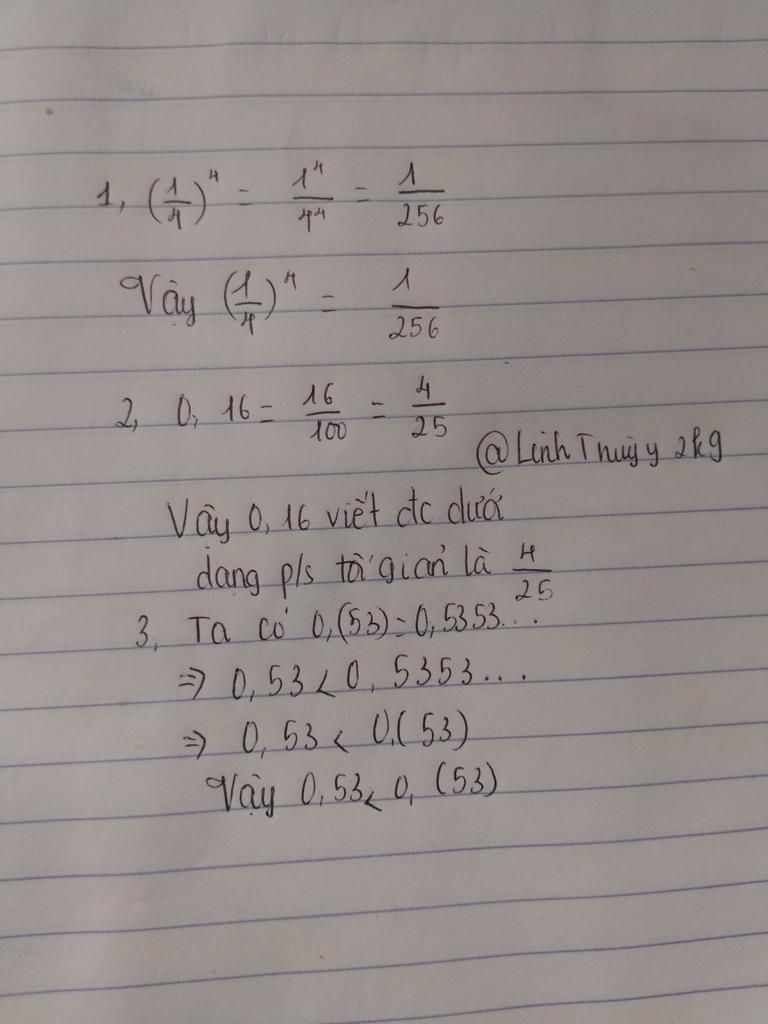 1, (1/4)^4 = 1^4/4^4 = 1/256
Vậy (1/4)^4 = 1/256
2, 0, 16 = 16/100 = 4/25
@LinhThuỳy2k9
Vậy 0, 16 viết đc dưới
dạng p/s tối giản là 4/25
3, Ta có 0,(53) = 0,5353...
⇒ 0,53 < 0,5353...
⇒ 0,53 < 0,(53)
Vậy 0,53 < 0, (53)